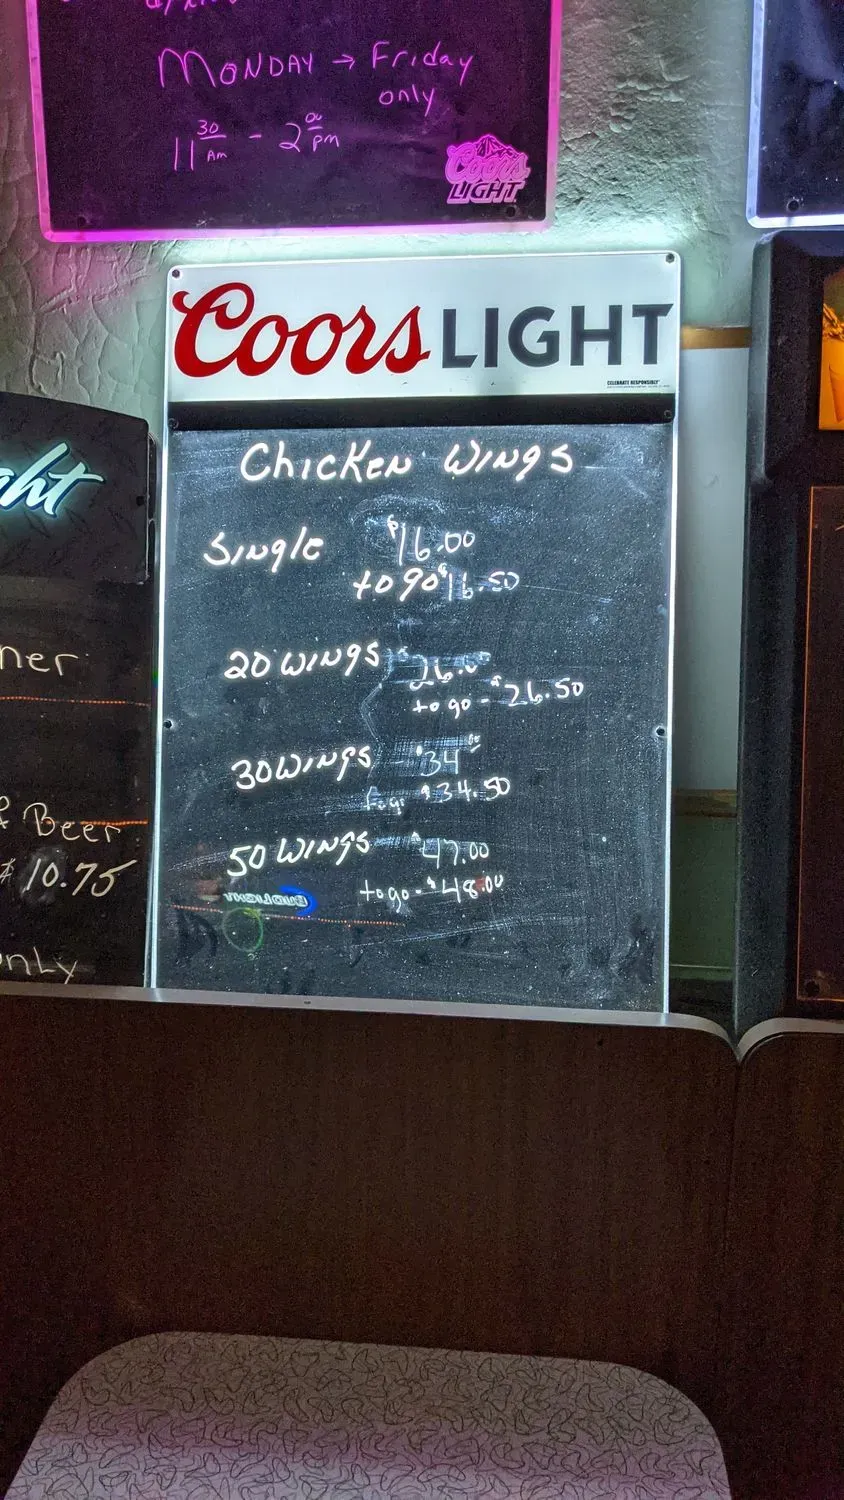 MONDAY → Friday
only
11 30 Am - 2 00 pm
Coors
LIGHT
Coors LIGHT
CELEBRATE RESPONSIBLY
Chicken Wings
Single $16.00
to go $16.50
20 wings $26.00
to go - $26.50
30 wings - $34 00
to go $34.50
50 wings - $47.00
to go - $48.00
ght
ner
Beer
$10.75
only